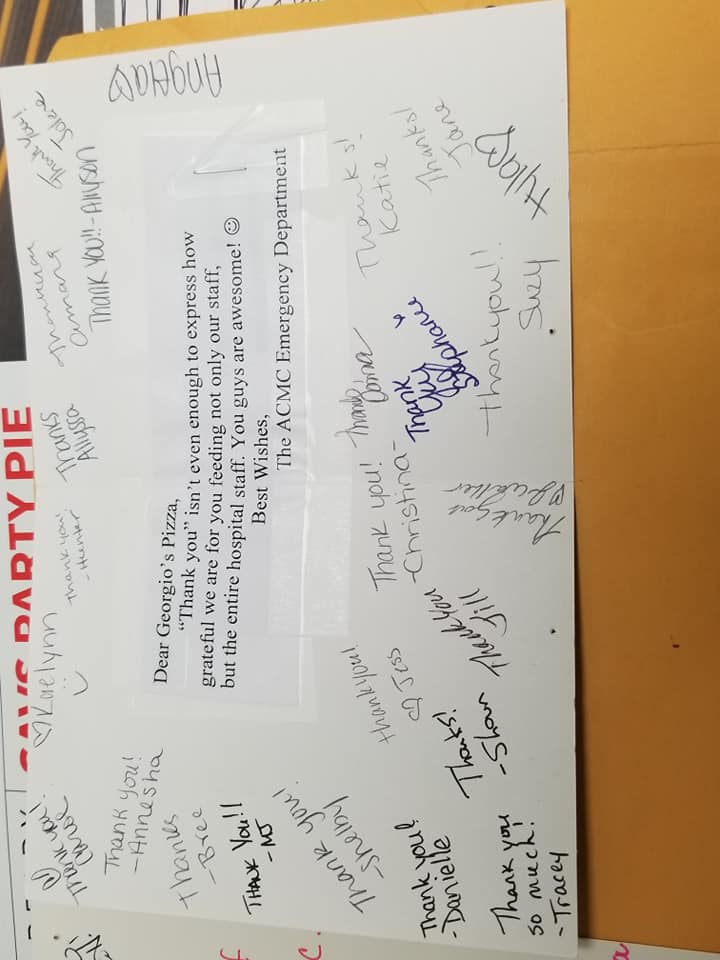 Dear Georgio's Pizza,
"Thank you" isn't even enough to express how
grateful we are for you feeding not only our staff,
but the entire hospital staff. You guys are awesome! ☺
Best Wishes,
The ACMC Emergency Department
Thank you!
Thank you!
-Annesha
Thanks
-Bree
THANK YOU!!
-MJ
Thank you!
-Shelby
Thank you!
-Danielle
Thank you
so much!
-Tracey
♡Korelynn
Thank you!
-Hunter
Thanks
Allyssa
Amara
THANK YOU!!-Allyson
Thank you!
Angela♡
thankyou!
☺Jess
Thanks!
-Shan
Thank you
Jill
Thank you!
-Christina-
Thank you
♡
Thank
you
Stephanie
Thankyou!!
Suzy
Thanks!
Katie
Thanks!
Jane
Kyla♡
PARTY PIE